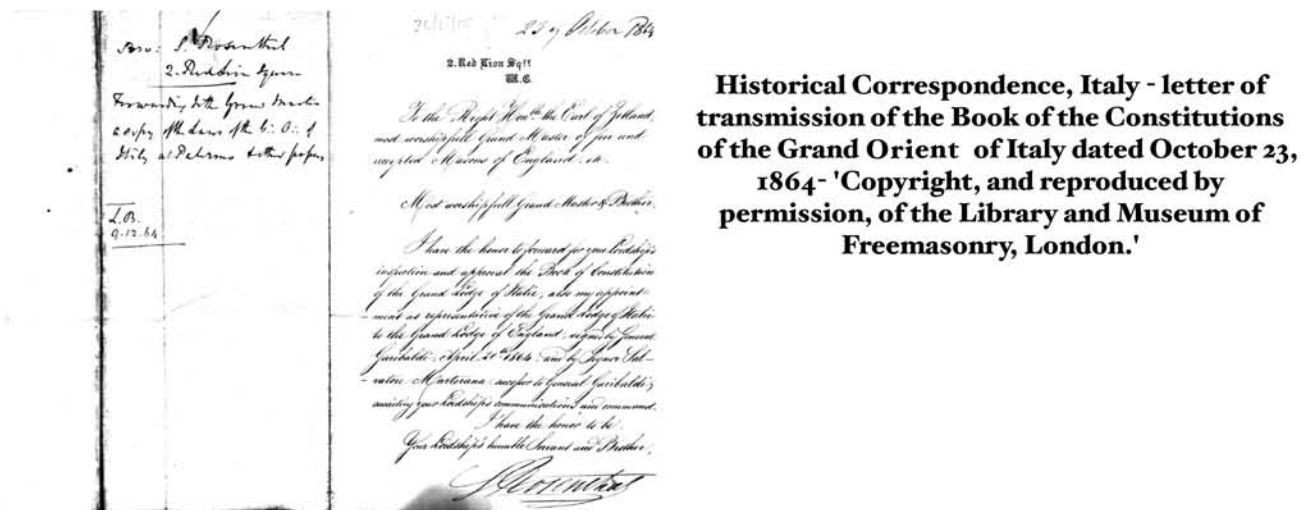 Bro: S. Rosenthal
2. Red Lion Square
Forwarding to the Grand Master
a copy of the Laws of the G: O: of
Italy at Palermo & other papers
9.12.64
23 of October 1864
2. Red Lion Sqre
W.C.
To the Right Honble the Earl of Zetland,
most worshipfull Grand Master of free and
accepted Masons of England. etc
Most worshipfull Grand Master & Brother,
I have the honor to forward for your Lordship's
inspection and approval the Book of Constitution
of the Grand Lodge of Italie, also my appoint-
-ment as representative of the Grand Lodge of Italie
to the Grand Lodge of England, signed by General
Garibaldi, April 20th 1864: and by Signor Sal-
-vatore
awaiting your Lordship's communications and command.
I have the honor to be.
Your Lordship's humble Servant and Brother,
S Rosenthal
Historical Correspondence, Italy - letter of
transmission of the Book of the Constitutions
of the Grand Orient of Italy dated October 23,
1864- 'Copyright, and reproduced by
permission, of the Library and Museum of
Freemasonry, London.'